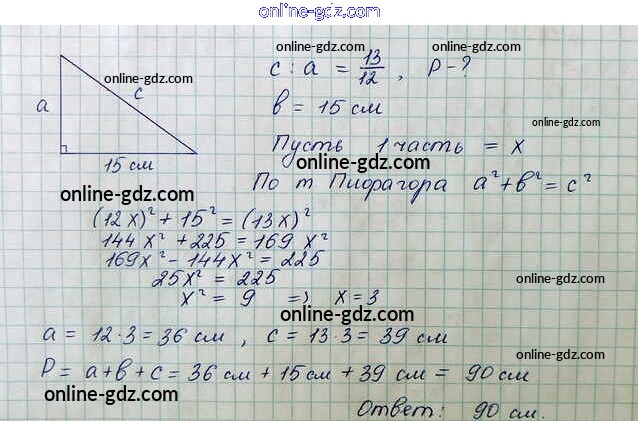 online-gdz.com
online-gdz.com
online-gdz.com
c : a = 13/12, P - ?
online-gdz.com
a
c
b = 15 см
online-gdz.com
Пусть 1 часть = x
15 см
online-gdz.com
online-gdz.com
По т Пифагора a² + b² = c²
(12x)² + 15² = (13x)²
144x² + 225 = 169x²
169x² - 144x² = 225
25x² = 225
online-gdz.com
x² = 9 => x = 3
online-gdz.com
a = 12·3 = 36 см, c = 13·3 = 39 см
online-gdz.com
P = a + b + c = 36 см + 15 см + 39 см = 90 см
online-gdz.com
Ответ: 90 см.